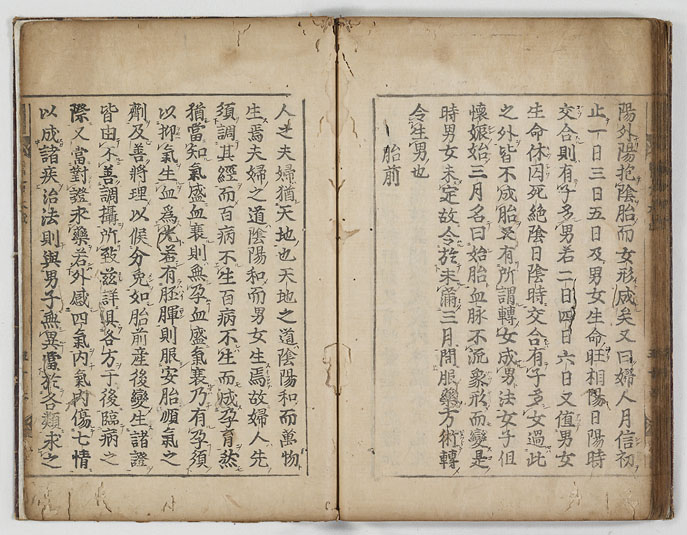 陽外陽抱陰胎而女形成矣又曰婦人月信初
止一日三日五日及男女生命旺相陽日陽時
交合則有子多男若二日四日六日又值男女
生命休囚死絶陰日陰時交合有子多女過此
之外皆不成胎又有所謂轉女成男法女子但
懷娠始三月名曰始胎血脉不流象形而變是
時男女未定故令於未滿三月間服藥方術轉
令生男也
胎前
人之夫婦猶天地也天地之道陰陽和而萬物
生焉夫婦之道陰陽和而男女生焉故婦人先
須調其經而百病不生百病不生而成孕育然
猶當知氣盛血衰則無孕血盛氣衰乃有孕須
以抑氣生血爲先若有胚腪則服安胎順氣之
劑及善將理以候分免如胎前産後變生諸證
皆由不善調攝所致茲詳具各方于後臨病之
際又當對證求藥若外感四氣内氣内傷七情
以成諸疾治法則與男子無異當於各類求之